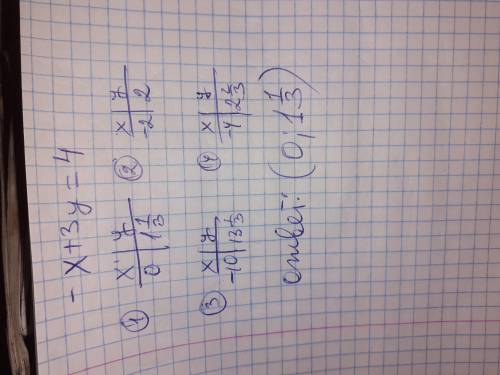 - x + 3y = 4
① x | y ② x | y
0 | 1 1/3 -2 | 2
③ x | y ④ x | y
-10 | 13 1/3 -4 | 2 2/3
ответ: (0; 1 1/3)